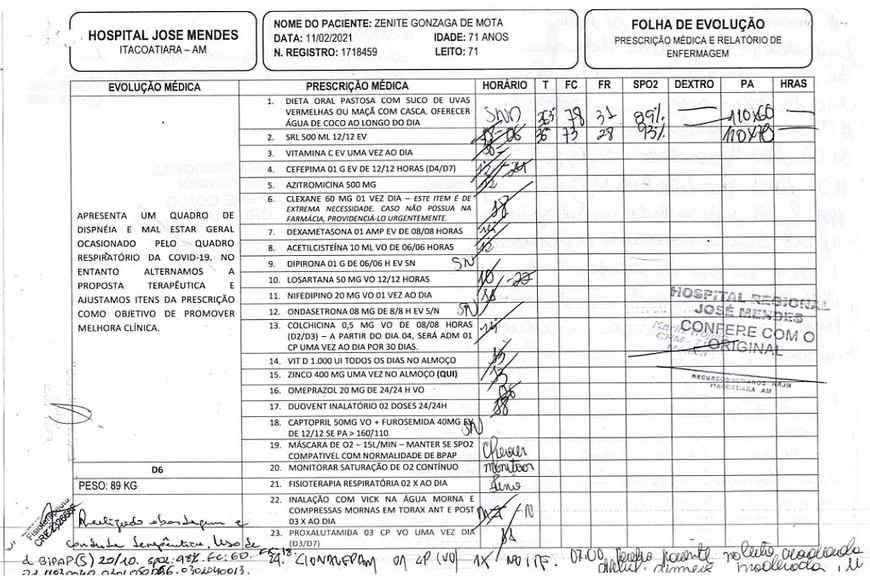 HOSPITAL JOSE MENDES
ITACOATIARA – AM
NOME DO PACIENTE: ZENITE GONZAGA DE MOTA
DATA: 11/02/2021 IDADE: 71 ANOS
N. REGISTRO: 1718459 LEITO: 71
FOLHA DE EVOLUÇÃO
PRESCRIÇÃO MÉDICA E RELATÓRIO DE
ENFERMAGEM
EVOLUÇÃO MÉDICA PRESCRIÇÃO MÉDICA HORÁRIO T FC FR SPO2 DEXTRO PA HRAS
APRESENTA UM QUADRO DE
DISPNÉIA E MAL ESTAR GERAL
OCASIONADO PELO QUADRO
RESPIRATÓRIO DA COVID-19. NO
ENTANTO ALTERNAMOS A
PROPOSTA TERAPÊUTICA E
AJUSTAMOS ITENS DA PRESCRIÇÃO
COMO OBJETIVO DE PROMOVER
MELHORA CLÍNICA.
D6
PESO: 89 KG
1. DIETA ORAL PASTOSA COM SUCO DE UVAS
VERMELHAS OU MAÇÃ COM CASCA. OFERECER
ÁGUA DE COCO AO LONGO DO DIA
78 31 89% 110x60
2. SRL 500 ML 12/12 EV 18-06 36 73 28 93% 110x70
3. VITAMINA C EV UMA VEZ AO DIA
4. CEFEPIMA 01 G EV DE 12/12 HORAS (D4/D7) 12-24
5. AZITROMICINA 500 MG 12
6. CLEXANE 60 MG 01 VEZ DIA – ESTE ITEM É DE
EXTREMA NECESSIDADE. CASO NÃO POSSUA NA
FARMÁCIA, PROVIDENCIÁ-LO URGENTEMENTE.
18
7. DEXAMETASONA 01 AMP EV DE 08/08 HORAS
8. ACETILCISTEÍNA 10 ML VO DE 06/06 HORAS 12
9. DIPIRONA 01 G DE 06/06 H EV SN SN
10. LOSARTANA 50 MG VO 12/12 HORAS 10-22
11. NIFEDIPINO 20 MG VO 01 VEZ AO DIA
12. ONDASETRONA 08 MG DE 8/8 H EV S/N SN
13. COLCHICINA 0,5 MG VO DE 08/08 HORAS
(D2/D3) – A PARTIR DO DIA 04, SERÁ ADM 01
CP UMA VEZ AO DIA POR 30 DIAS.
14
14. VIT D 1.000 UI TODOS OS DIAS NO ALMOÇO
15. ZINCO 400 MG UMA VEZ NO ALMOÇO (QUI) 13
16. OMEPRAZOL 20 MG DE 24/24 H VO 06
17. DUOVENT INALATÓRIO 02 DOSES 24/24H 18
18. CAPTOPRIL 50MG VO + FUROSEMIDA 40MG EV
DE 12/12 SE PA > 160/110
SN
19. MÁSCARA DE O2 – 15L/MIN – MANTER SE SPO2
COMPATIVEL COM NORMALIDADE DE BPAP
Checar
20. MONITORAR SATURAÇÃO DE O2 CONTÍNUO monitorar
21. FISIOTERAPIA RESPIRATÓRIA 02 X AO DIA
22. INALAÇÃO COM VICK NA ÁGUA MORNA E
COMPRESSAS MORNAS EM TORAX ANT E POST
03 X AO DIA
23. PROXALUTAMIDA 03 CP VO UMA VEZ DIA
(D3/D7)
HOSPITAL REGIONAL
JOSÉ MENDES
CONFERE COM O
ORIGINAL
RECURSOS HUMANOS HRJM
ITACOATIARA AM
Fisioterapeuta
Realizado abordagem e
conduta terapêutica, Uso de
BIPAP(S) 20/10. spo2: 98% FC: 60.
24. CLONAZEPAM 01 CP (VO) 1X NOITE. 07:00 paciente no leito acordada